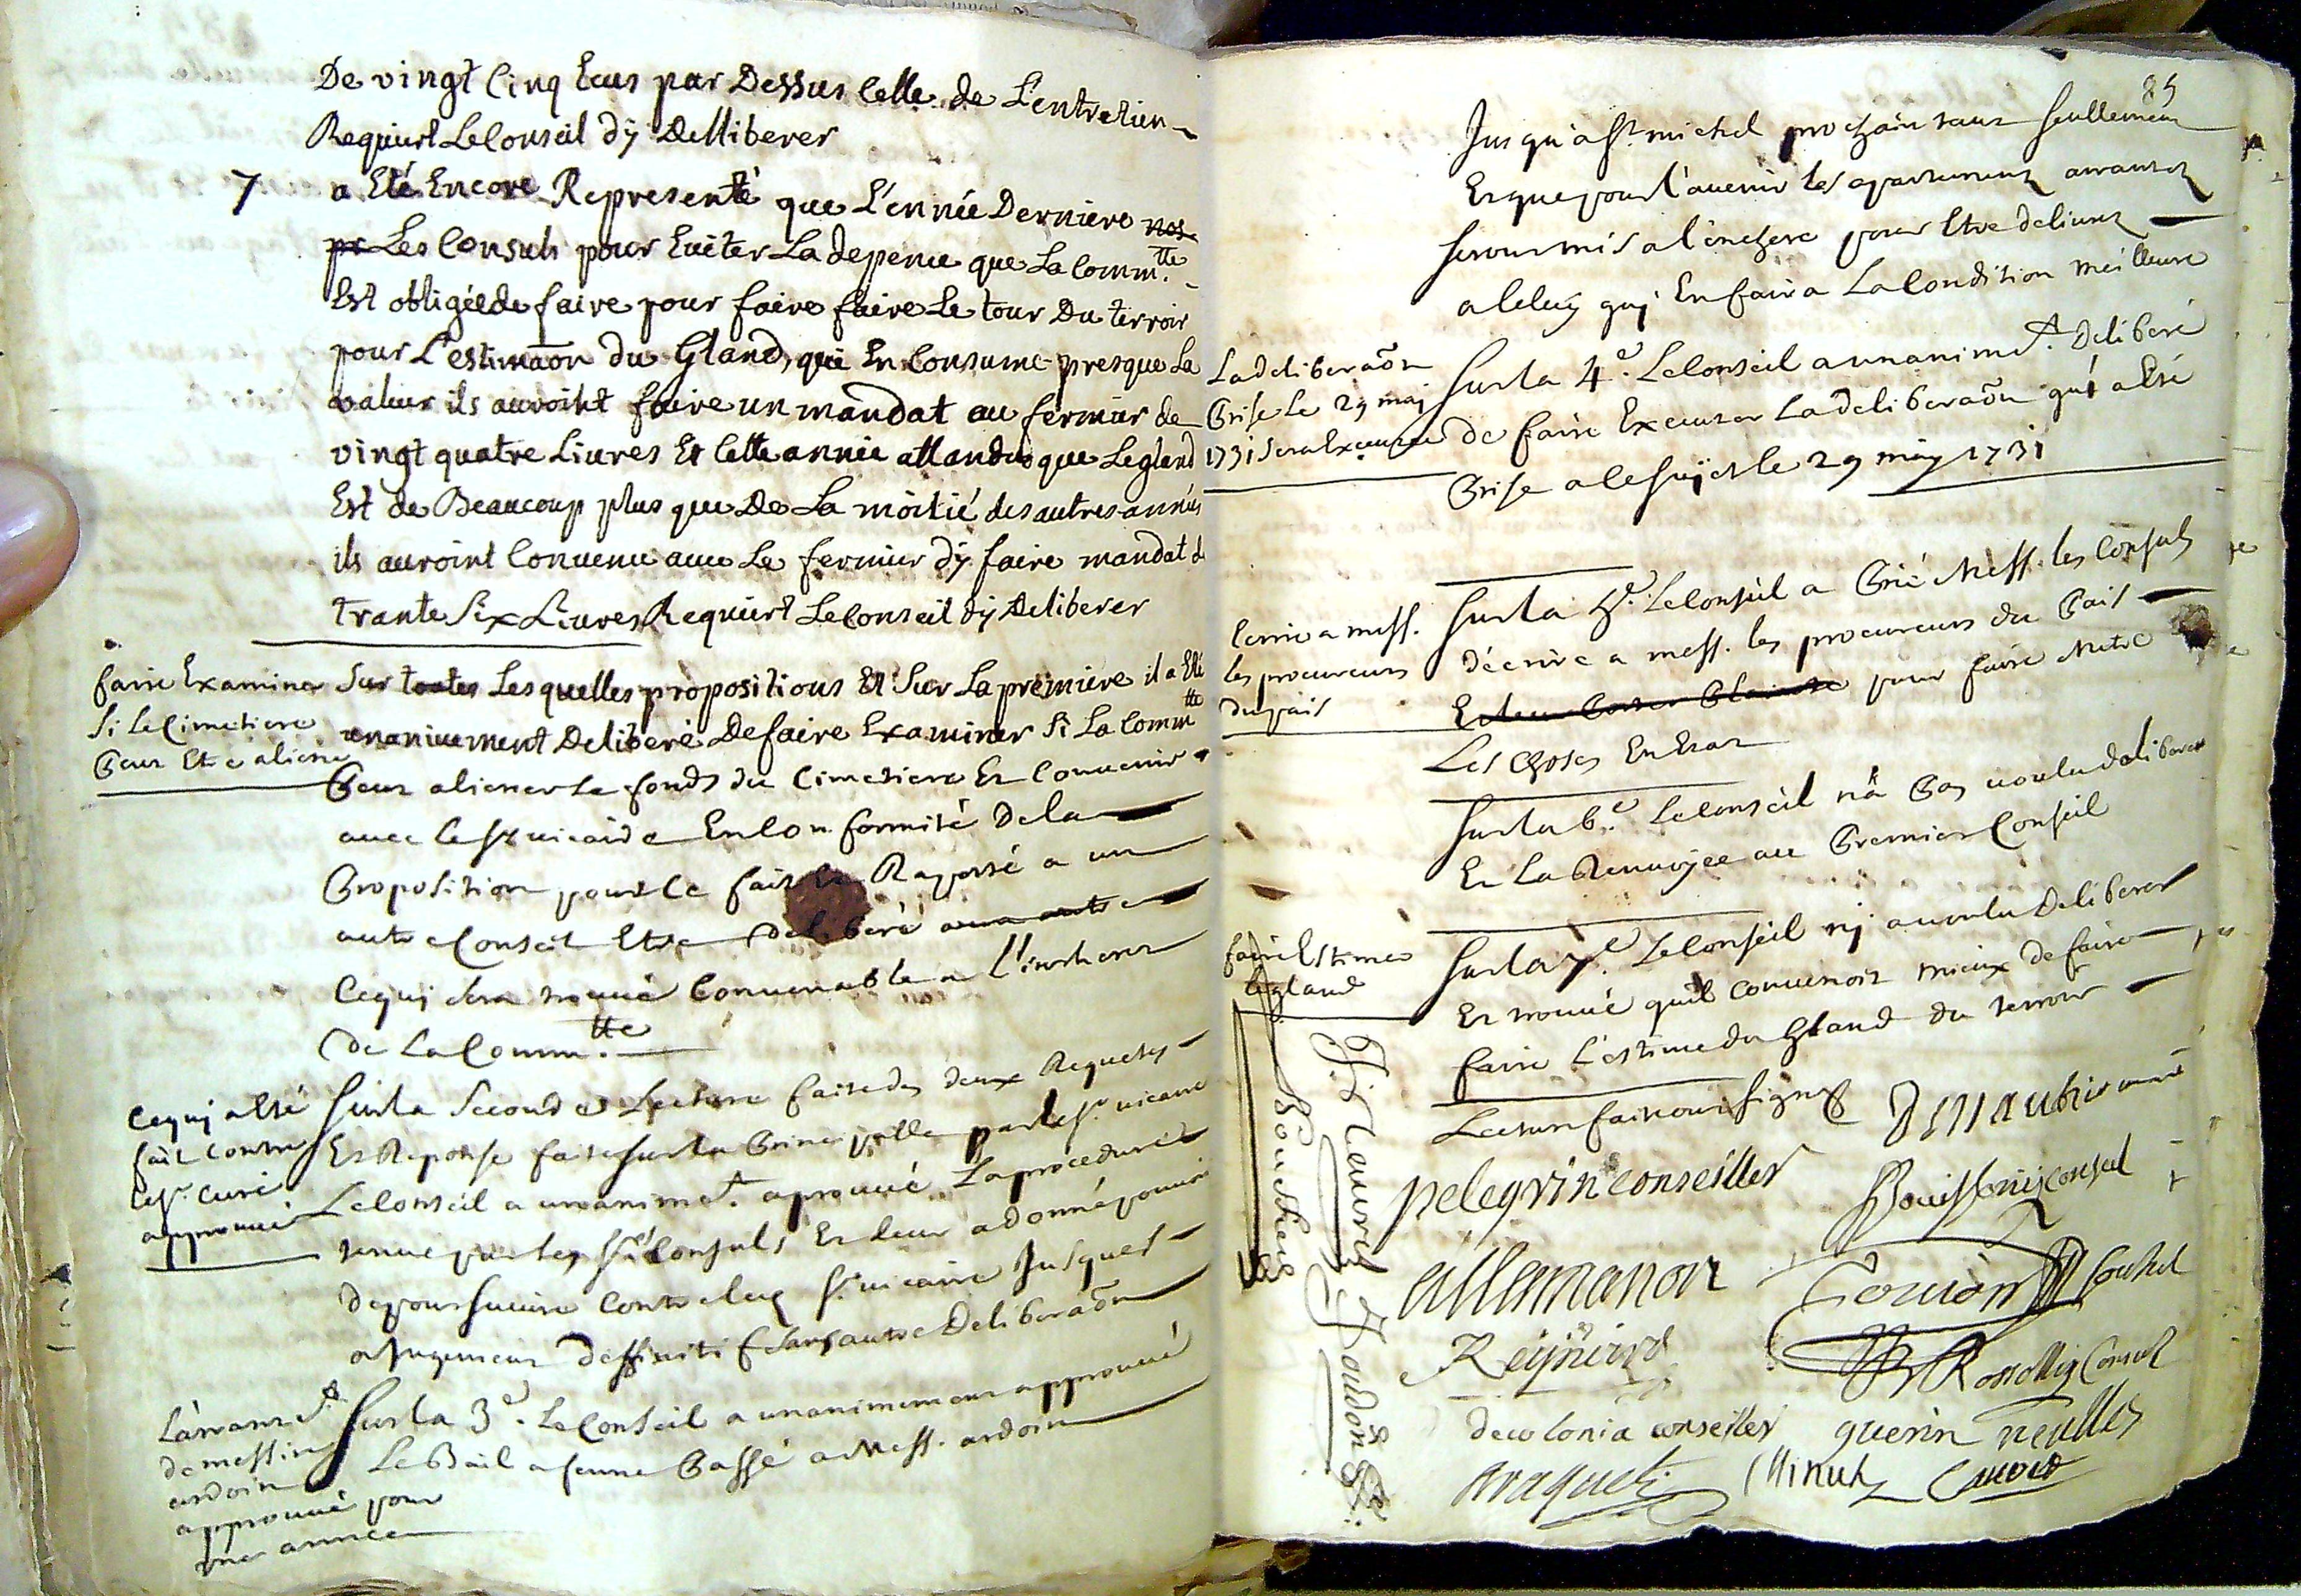 De vingt Cinq Ecus par Dessus Celle de L'entretien
Requiert Le Conseil dy Delliberer
7 a Eté Encore Representé que L'ennée Derniere nos
pr Les Consuls pour Euiter La depence que La Comm.tte
Est obligée de faire pour faire faire Le tour Du terroir
pour L'estimaõn du Gland, qui En Consume presque La
valeur ils auroint faire un mandat au fermier de
vingt quatre Liures Et Cette année attandu que Le gland
Est de Beaucoup plus que De La moitié des autres années
ils auroint Conuenu auec Le fermier dy faire mandat de
trante Six Liures Requiert Le Conseil dy Deliberer
faire Examiner
Si Le Cimetiere
Peut Etre aliené
Sur toutes Lesquelles propositions Et Sur La premiere il a Eté
unanimement Deliberé De faire Examiner Si La Commtte
Peut aliener Le fonds du Cimetiere Et Conuenir
auec Le Sr vicaire En Conformité De la
Proposition pour Le fait Raporté a un
autre Conseil Etre deliberé a un autre
Ce quj sera trouué Conuenable a L'intherest
de La Comm.tte
Ce quj a Eté
fait Contre
Le Sr. Curé
approuué
Sur La Seconde Lecture faite des deux Requetes
Et Reponse faite sur La Principalle par Le Sr. vicaire
Le Conseil a unanimt. aprouué La procedure
tenue par Les Srs Consuls Et Leur a donné pouuoir
de poursuiure Contre Led Sr. vicaire Jusques
a Jugement deffinitif sans autre Deliberaõn
L'arrantemt
de messire
ardoin
approuué pour
une année
Sur La 3e. Le Conseil a unanimement approuué
Le Bail a ferme Passé a Mess. ardoin
85
Jusqu'a St. michel prochain tant seullement
Et que pour l'auenir Les apartements arrantés
seront mis a l'enchere pour Etre deliurés
a Celuy quj En faira La Condition meilleure
La deliberaõn
Prise Le 29 maj
1731 sera Executée
Sur La 4e. Le Conseil a unanimt. Deliberé
de faire Executer La deliberaõn qui a Eté
Prise a Ce sujet Le 29 may 1731
Ecrire a mess.
Les procureurs
du pais
Sur La 5e. Le Conseil a Prié Mess. Les Consuls
d'ecrire a mess. Les procureurs du Pais
Et leur Porter Plainte pour faire Metre
Les Choses En Etat
Sur La 6e. Le Conseil n'a Pas voulu deliberer
Et La Renuoyée au Premier Conseil
faire Estimer
Le gland
Sur La 7e. Le Conseil nj a voulu Deliberer
Et trouué qu'il Conuenoit mieux de faire
faire L'estime du Gland du terroir
Lecture faite ont signés
pelegrin conseiller
allemanon
Reynard
de colonia conseiller guerin